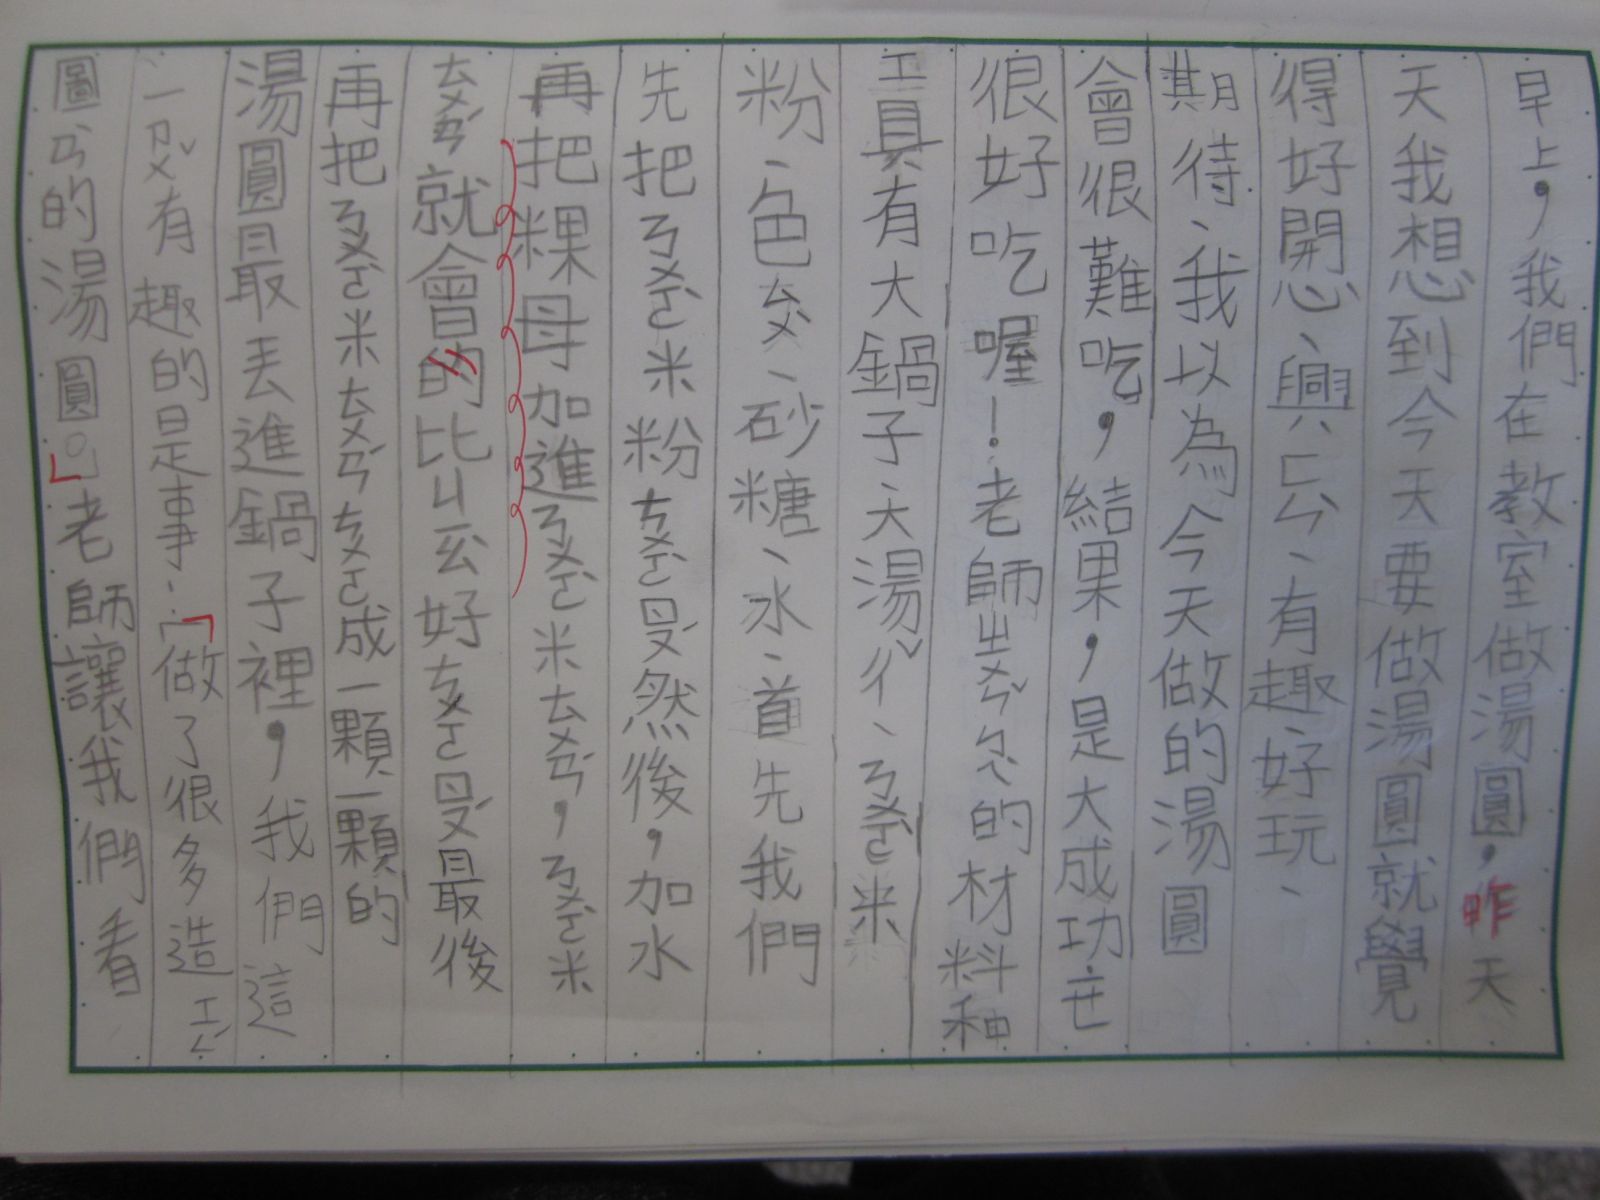 早上，我們在教室做湯圓，昨天
天我想到今天要做湯圓就覺
得好開心、興ㄈㄣˋ、有趣、好玩、
期待、我以為今天做的湯圓
會很難吃，結果，是大成功ㄝ
很好吃喔！老師ㄓㄨㄣˇㄅㄟˋ的材料和
工具有大鍋子、大湯ㄔˊ、ㄋㄨㄛˋ米
粉、色ㄙㄨˋ、砂糖、水、首先我們
先把ㄋㄨㄛˋ米粉ㄘㄨㄛㄖㄡˊ然後，加水
再把粿母加進ㄋㄨㄛˋ米ㄊㄨㄢˊ，ㄋㄨㄛˋ米
ㄊㄨㄢˊ就會的比ㄐㄧㄠˋ好ㄘㄨㄛㄖㄡˊ最後
再把ㄋㄨㄛˋ米ㄊㄨㄢˊㄘㄨㄛ成一顆一顆的
湯圓最丟進鍋子裡，我們這
一ㄗㄨˇ有趣的是事：「做了很多造ㄒㄧㄥˊ
圖ㄢˋ的湯圓。」老師讓我們看